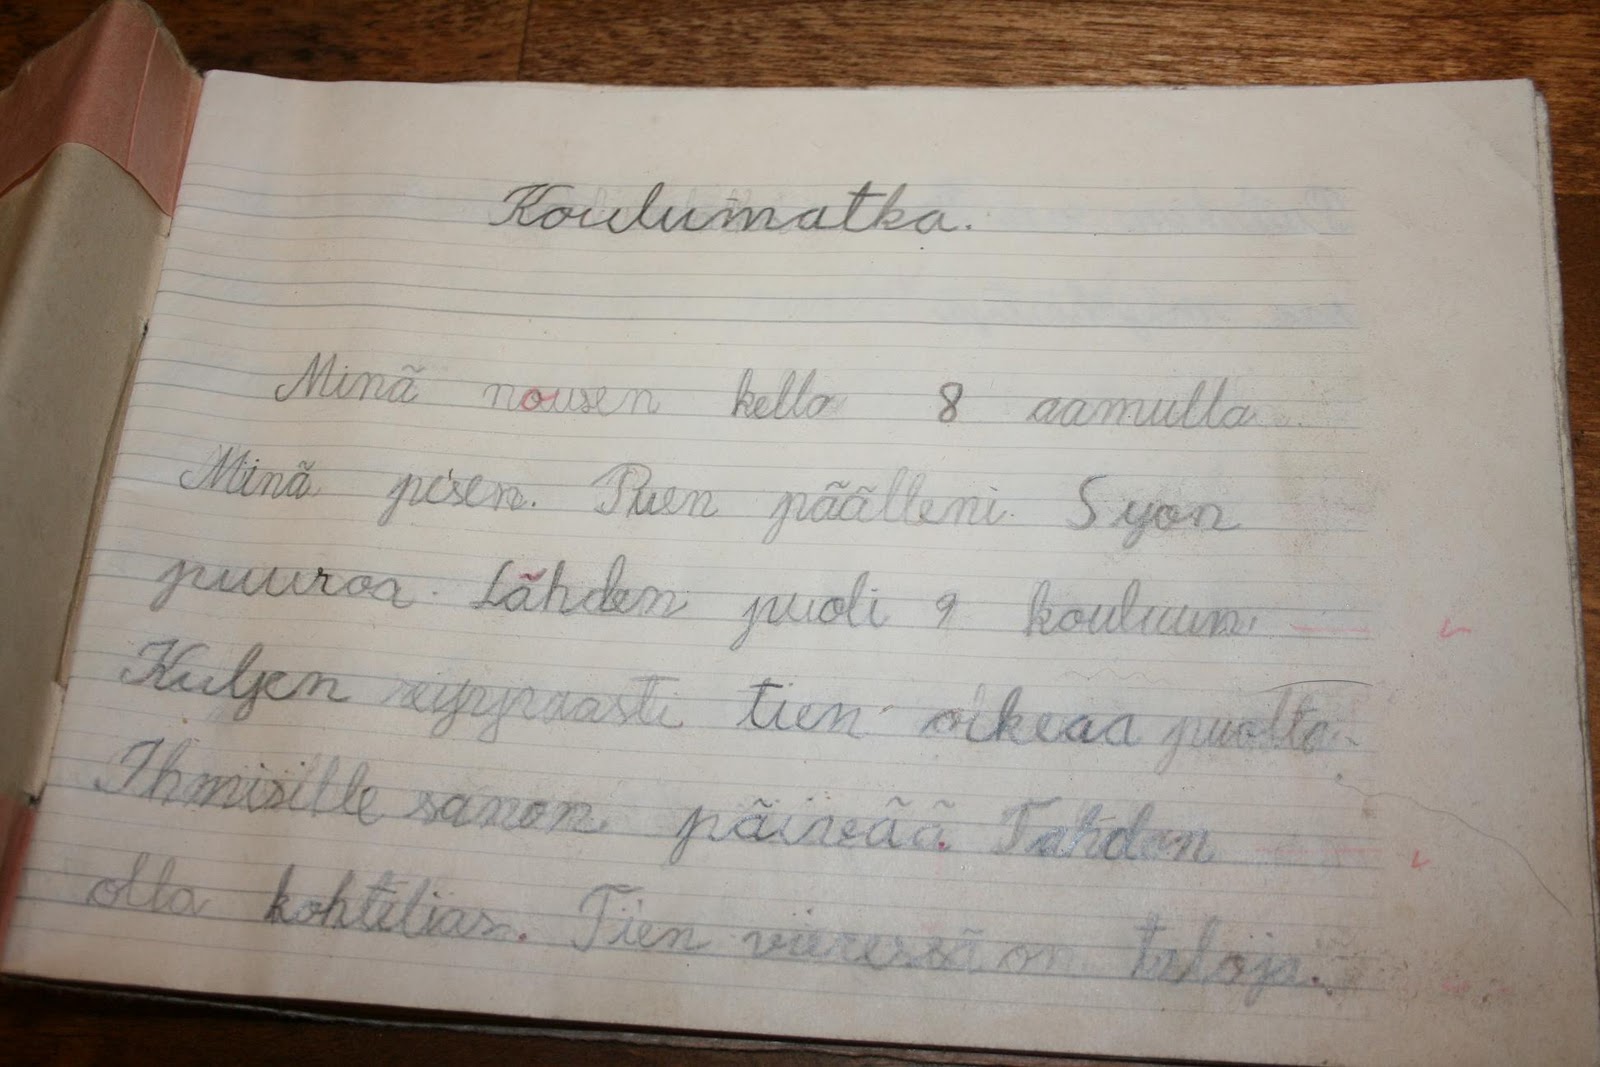 Koulumatka.
Minä nousen kello 8 aamulla
Minä pesen. Puen päälleni. Syon
puuroa. Lähden puoli 9 kouluun.
Kuljen reippaasti tien oikeaa puolta.
Ihmisille sanon päivää. Tahdon
olla kohtelias. Tien vieressä on taloja.